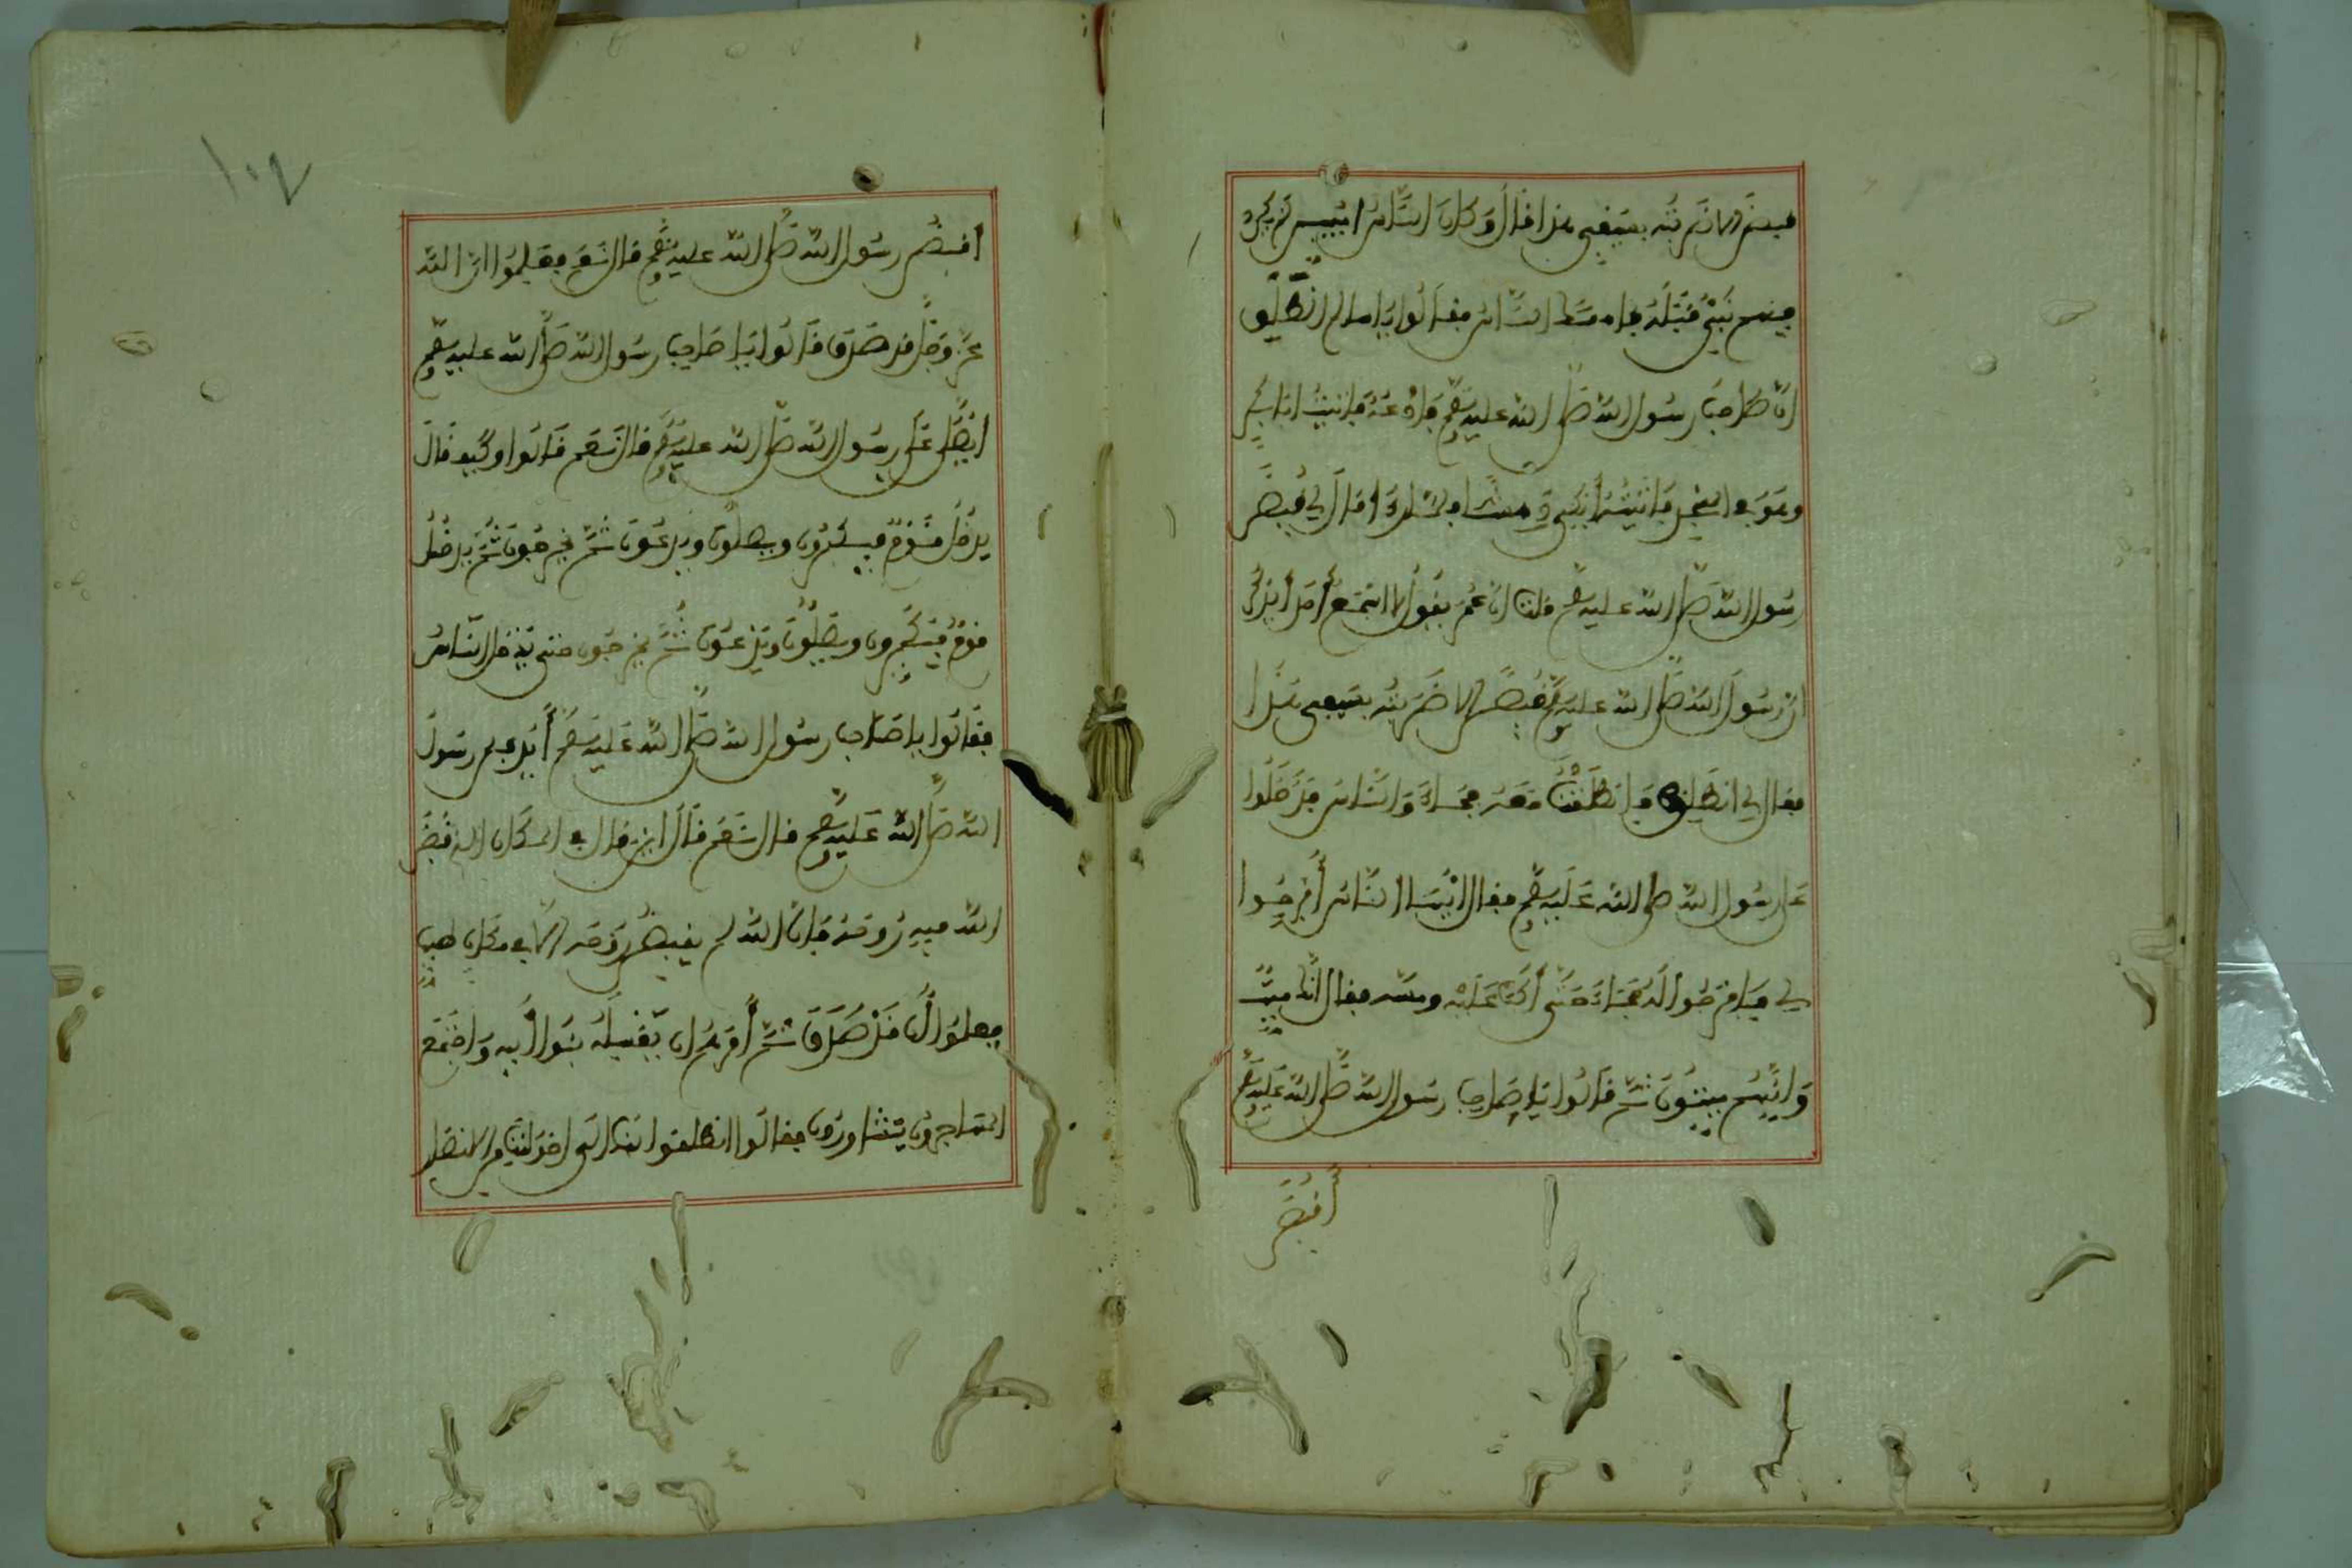 قبض إلا ضربته بسيفي هذا قال وكان الناس أميين لم يكن
فيهم نبي قبله فأمسك الناس فقالوا يا سالم انطلق
الى صاحب رسول الله صلى الله عليه وسلم فادعه فاتيت ابا بكر
وهو في المسجد فأتيته أبكي دهشا فلما رآني قال لي أقبض
رسول الله صلى الله عليه وسلم قلت ان عمر يقول لا اسمع أحدا يذكر
ان رسول الله صلى الله عليه وسلم قبض الا ضربته بسيفي هذا
فقال لي انطلق فانطلقت معه فجاء والناس قد دخلوا
على رسول الله صلى الله عليه وسلم فقال ايها الناس أفرجوا
لي فافرجوا له فجاء حتى أكب عليه ومسه فقال انك ميت
وانهم ميتون ثم قالوا يا صاحب رسول الله صلى الله عليه وسلم
أقبض
١٠٧
اقبض رسول الله صلى الله عليه وسلم قال نعم فعلموا ان الله
عز وجل قد صدق قالوا يا صاحب رسول الله صلى الله عليه وسلم
ايصلى على رسول الله صلى الله عليه وسلم قال نعم قالوا وكيف قال
يدخل قوم فيكبرون ويصلون ويدعون ثم يخرجون ثم يدخل
قوم فيكبرون ويصلون ويدعون ثم يخرجون حتى يدخل الناس
فقالوا يا صاحب رسول الله صلى الله عليه وسلم أيدفن رسول
الله صلى الله عليه وسلم قال نعم قال اين قال في المكان الذي قبض
الله فيه روحه فان الله لم يقبض روحه الا في مكان طيب
فعلموا أن قد صدق ثم أمرهم ان يغسله بنو أبيه واجتمع
المهاجرون يتشاورون فقالوا انطلقوا بنا الى اخواننا من الانصار